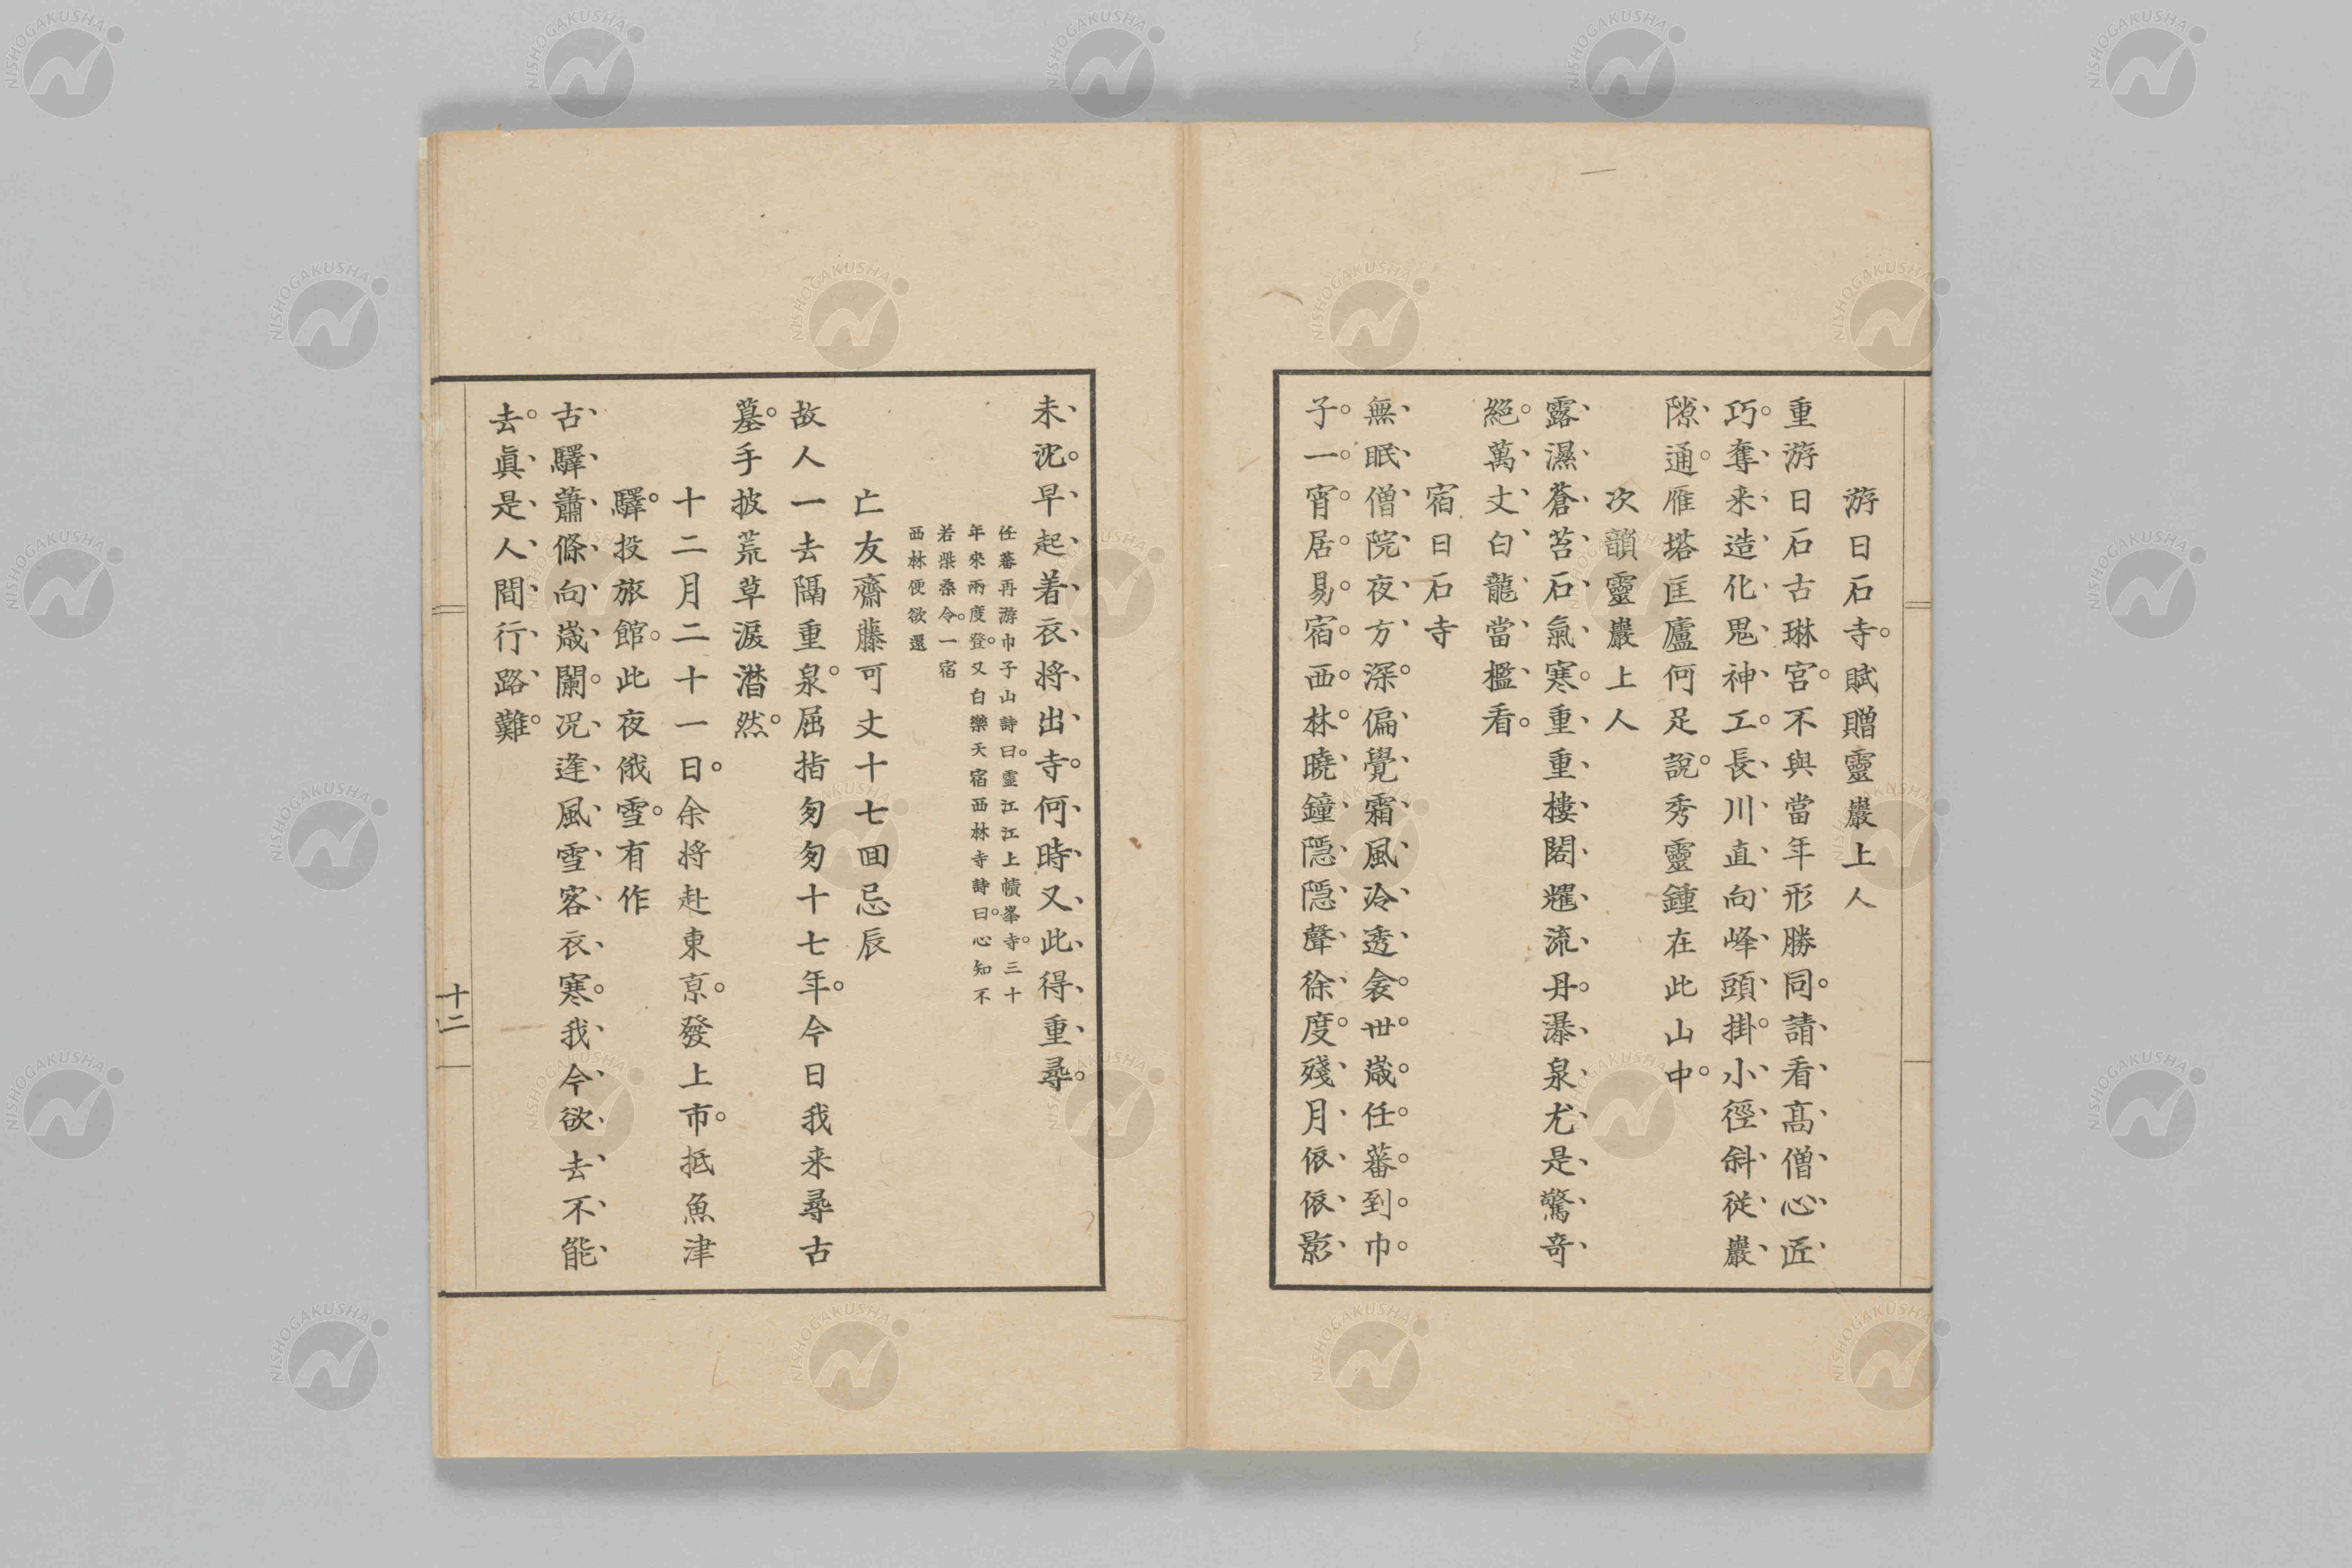 游日石寺。賦贈靈巖上人
重游日石古琳宮。不與當年形勝同。請看高僧心匠
巧。奪來造化鬼神工。長川直向峰頭掛。小徑斜從巖
隙通。雁塔匡廬何足說。秀靈鍾在此山中。
次韻靈巖上人
露濕蒼苔石氣寒。重重樓閣耀流丹。瀑泉尤是驚奇
絕。萬丈白龍當檻看。
宿日石寺
無眠僧院夜方深。偏覺霜風冷透衾。丗歲任蕃到巾
子。一宵居易宿西林。曉鐘隱隱聲徐度。殘月依依影
未沈。早起着衣將出寺。何時又此得重尋。
任蕃再游巾子山詩曰。靈江江上幘峯寺。三十
年來兩度登。又白樂天宿西林寺詩曰。心知不
若柴桑令。一宿
西林便欲還
亡友齋藤可丈十七回忌辰
故人一去隔重泉。屈指匆匆十七年。今日我来尋古
墓。手披荒草淚潸然。
十二月二十一日。余將赴東京。發上市。抵魚津
驛。投旅館。此夜俄雪。有作
古驛蕭條向歲闌。況逢風雪客衣寒。我今欲去不能
去。眞是人間行路難。
十二
NISHOGAKUSHA